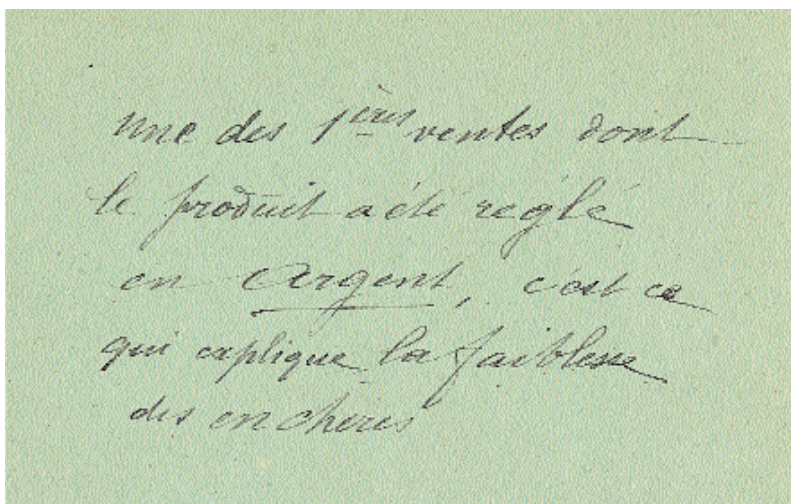 une des 1ères ventes dont
le produit a été réglé
en argent, c'est ce
qui explique la faiblesse
des enchères